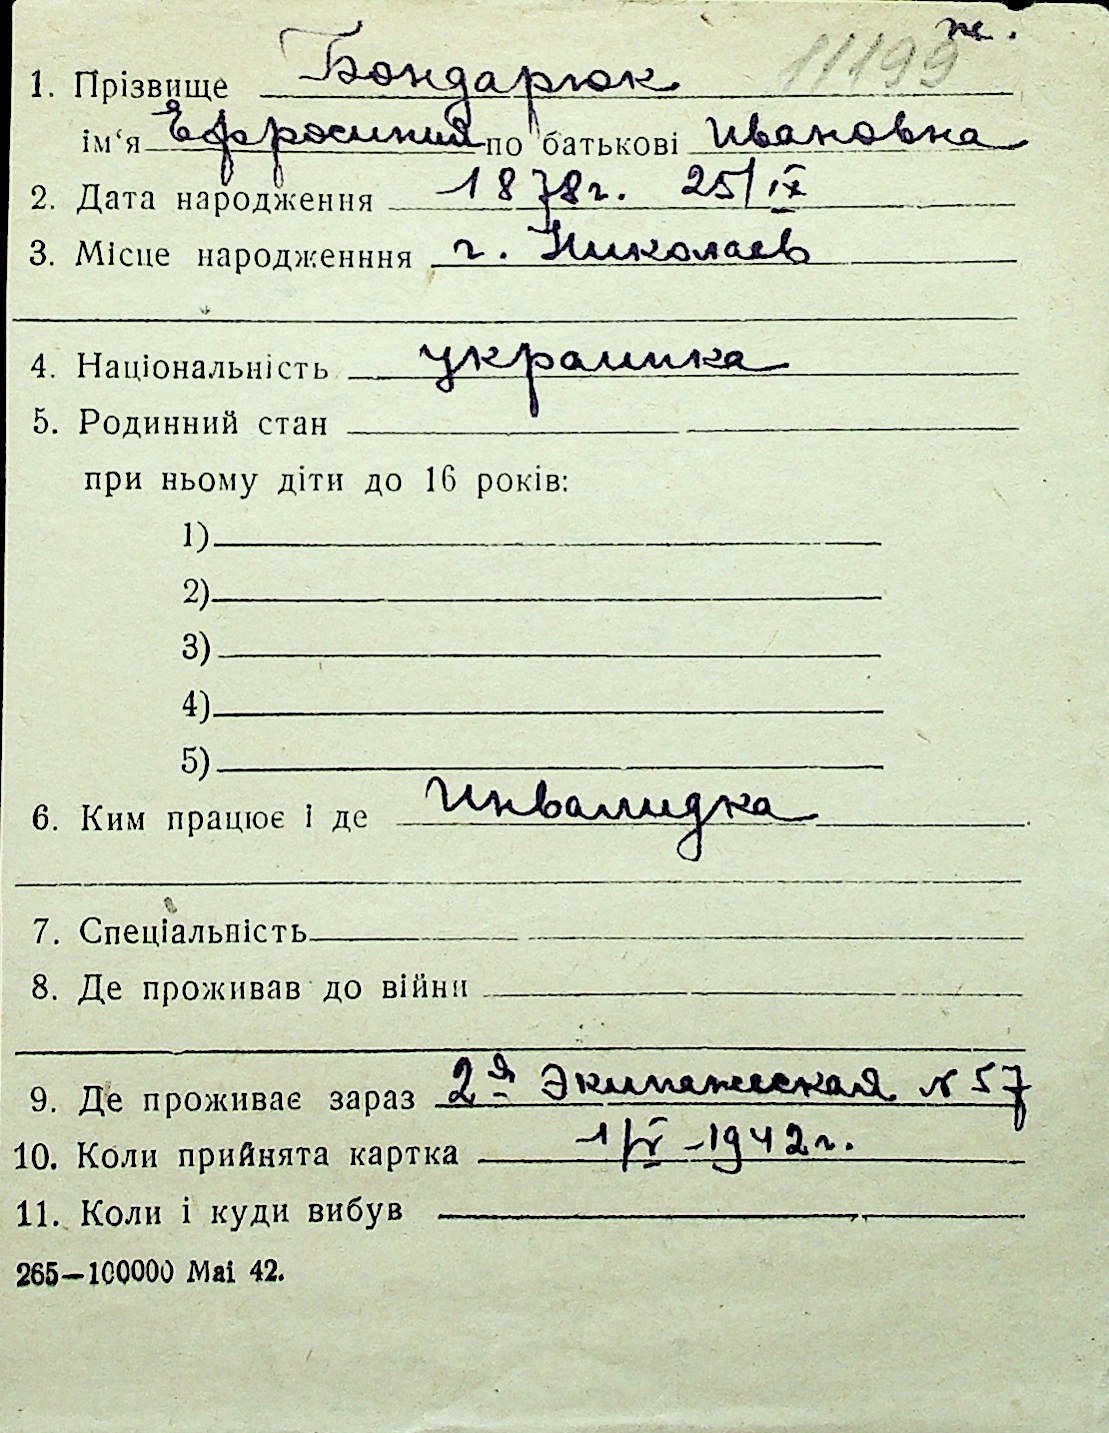 же. 11199
1. Прізвище Бондарюк
ім‘я Ефросиния по батькові Ивановна
2. Дата народження 1878г. 25/IX
3. Місце народженння г. Николаев
4. Національність украинка
5. Родинний стан
при ньому діти до 16 років:
1)
2)
3)
4)
5)
6. Ким працює і де Инвалидка
7. Спеціальність
8. Де проживав до війни
9. Де проживає зараз 2я Экипажеская N 57
10. Коли прийнята картка 1942г.
11. Коли і куди вибув
265—100000 Mai 42.